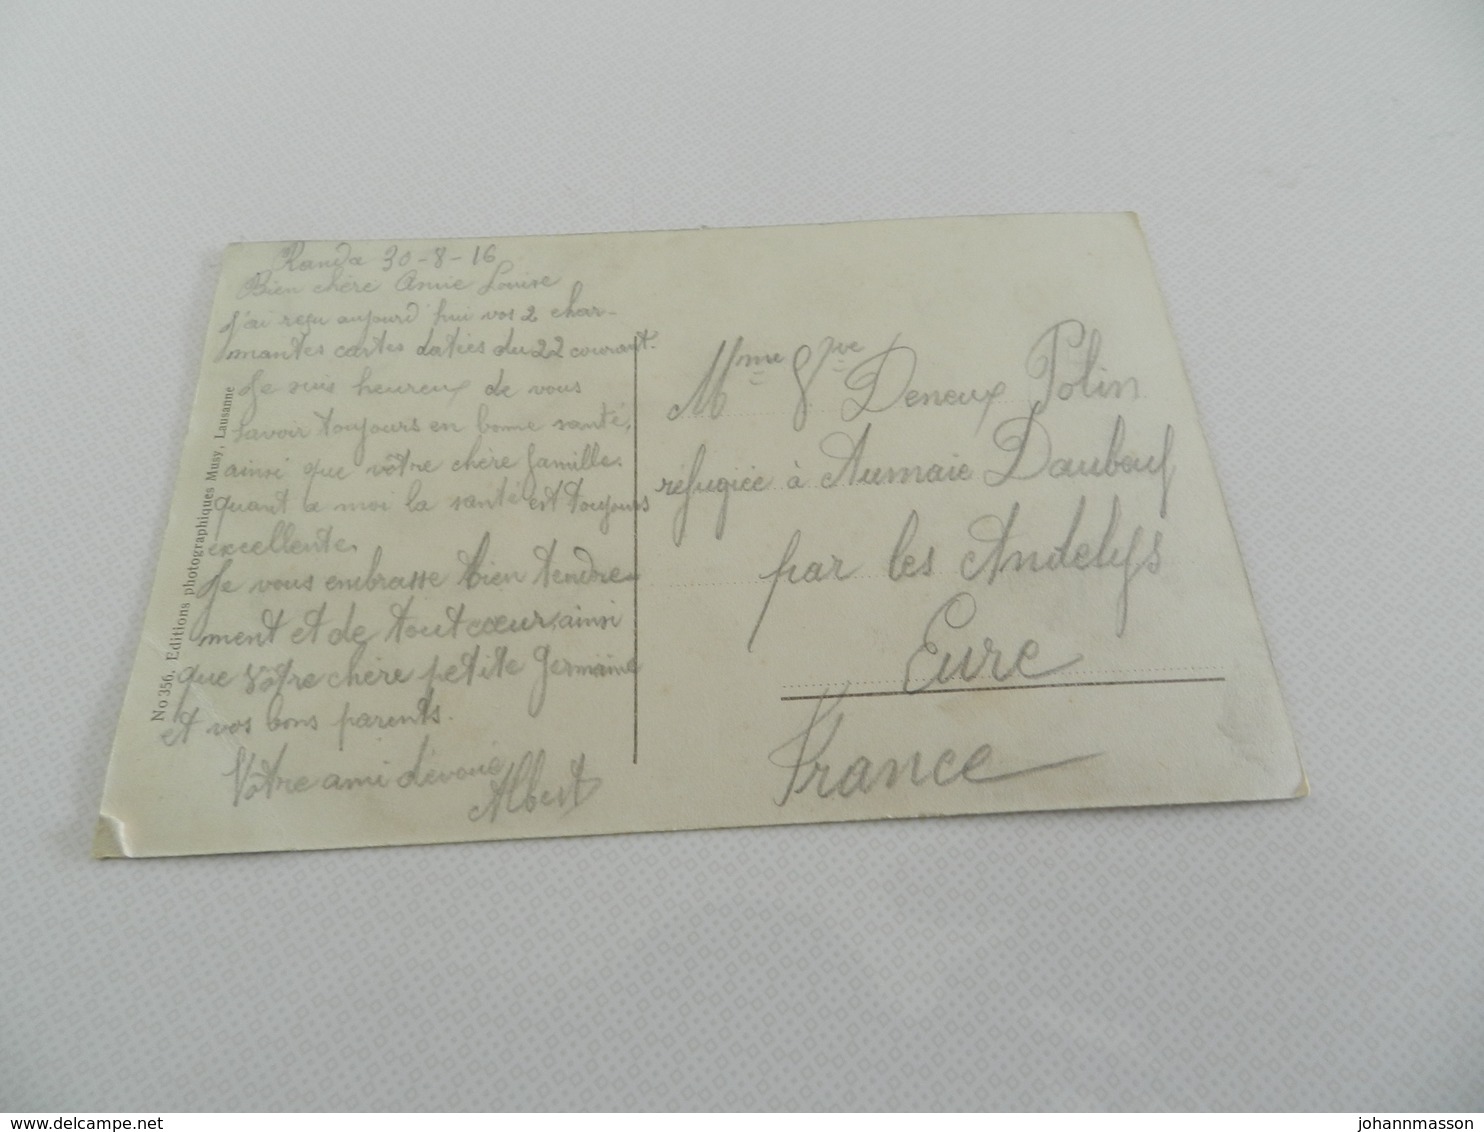 Randa 30-8-16
Bien chère Amie Louise
J'ai reçu aujourd'hui vos 2 char-
mantes cartes datées du 22 courant.
Je suis heureux de vous
savoir toujours en bonne santé,
ainsi que vôtre chère famille.
quant a moi la santé est toujours
excellente.
Je vous embrasse bien tendre-
ment et de tout cœur, ainsi
que vôtre chère petite Germaine
et vos bons parents.
Vôtre ami dévoué
Albert
No 356. Editions photographiques Musy, Lausanne
Mme Vve Deneux Polin
réfugiée à Daubeuf
par les Andelys
Eure
France
www.delcampe.net
johannmasson